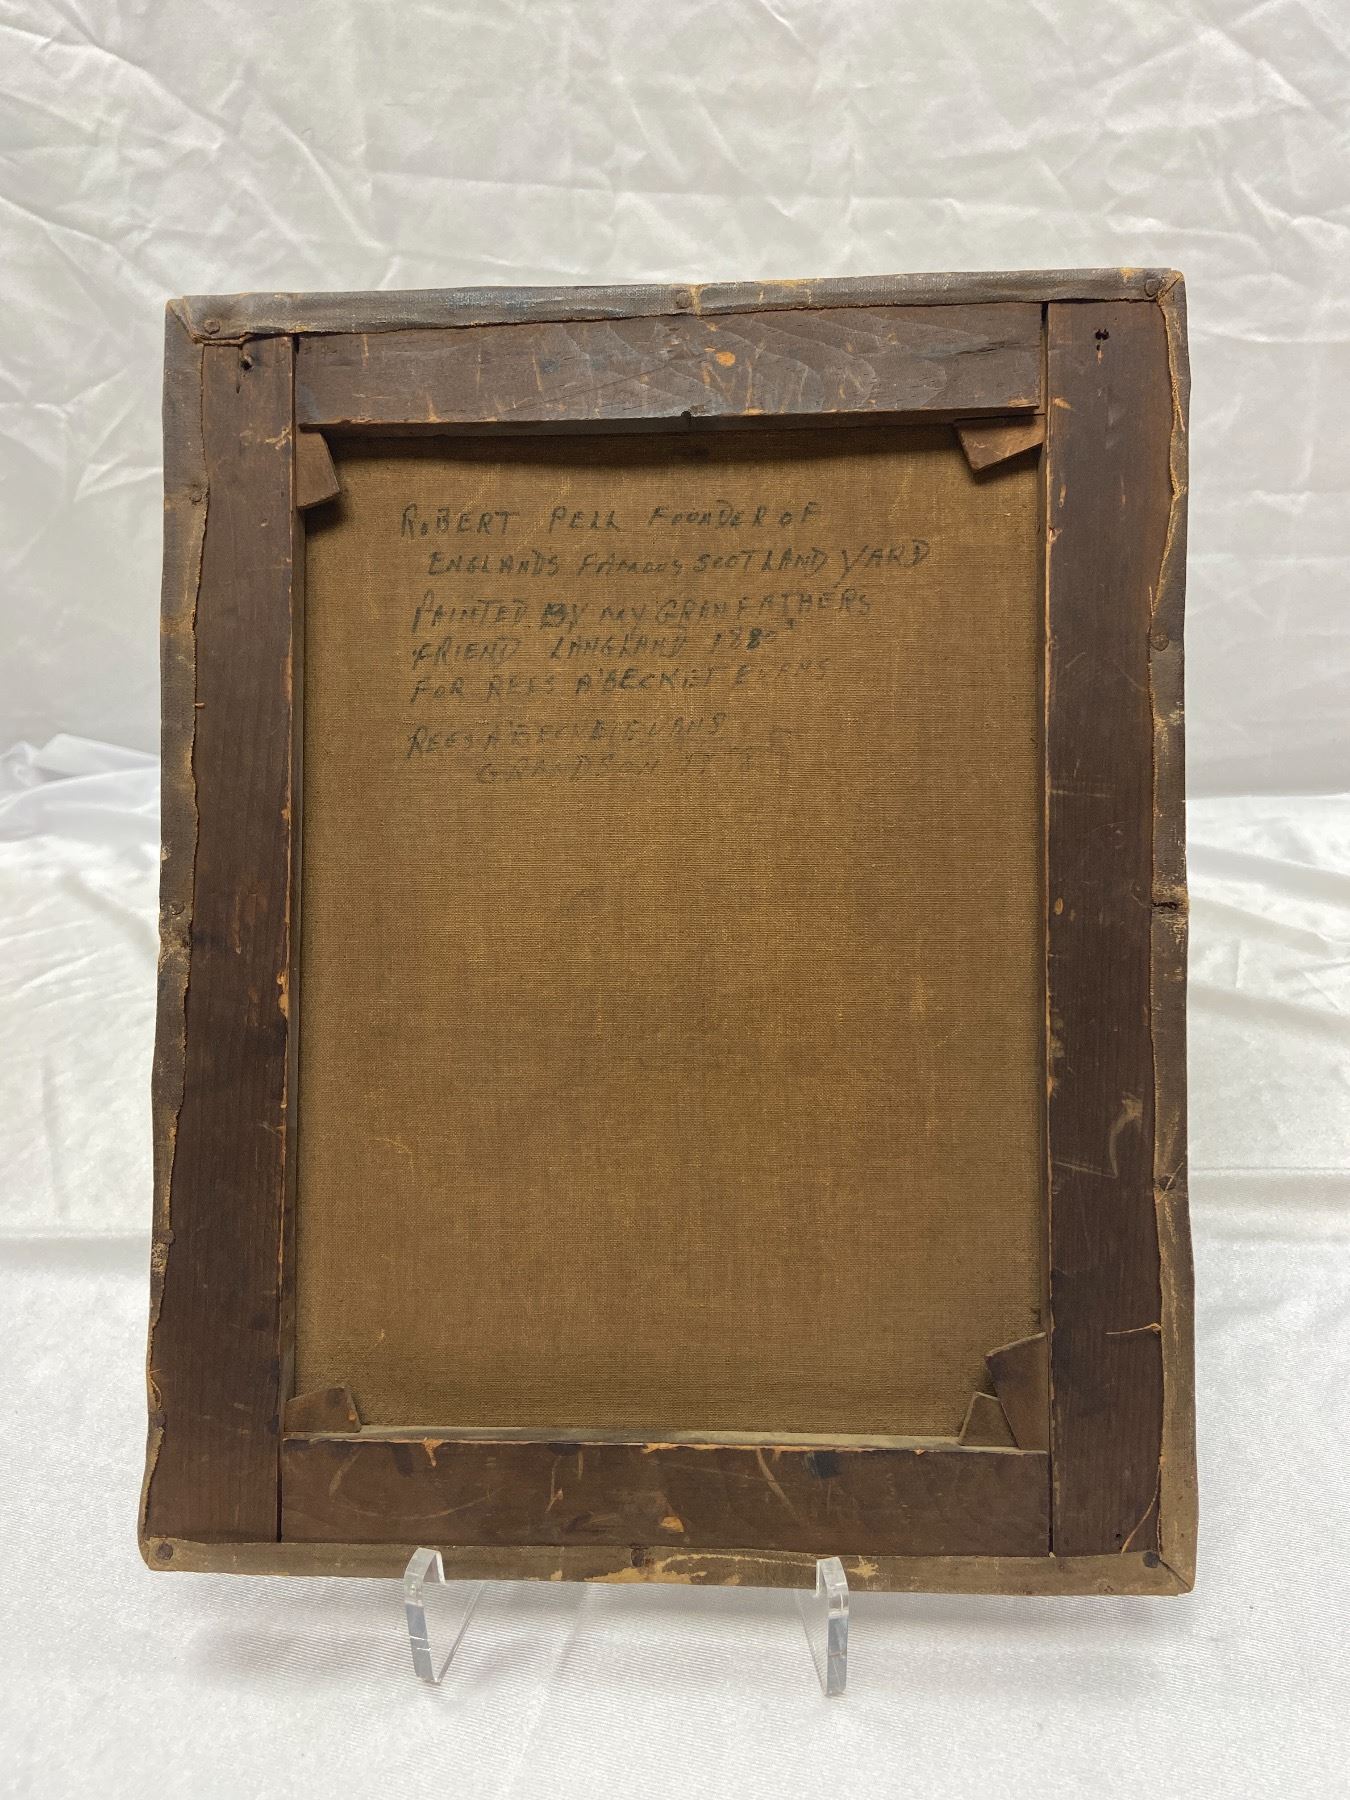 ROBERT PELL FOUNDER OF
ENGLANDS FAMOUS SCOTLAND YARD
PAINTED BY MY GRANFATHERS
FRIEND LANGLAND 1880'
FOR REES A'BECKET EVANS
REES A'BECKET EVANS
GRANDSON